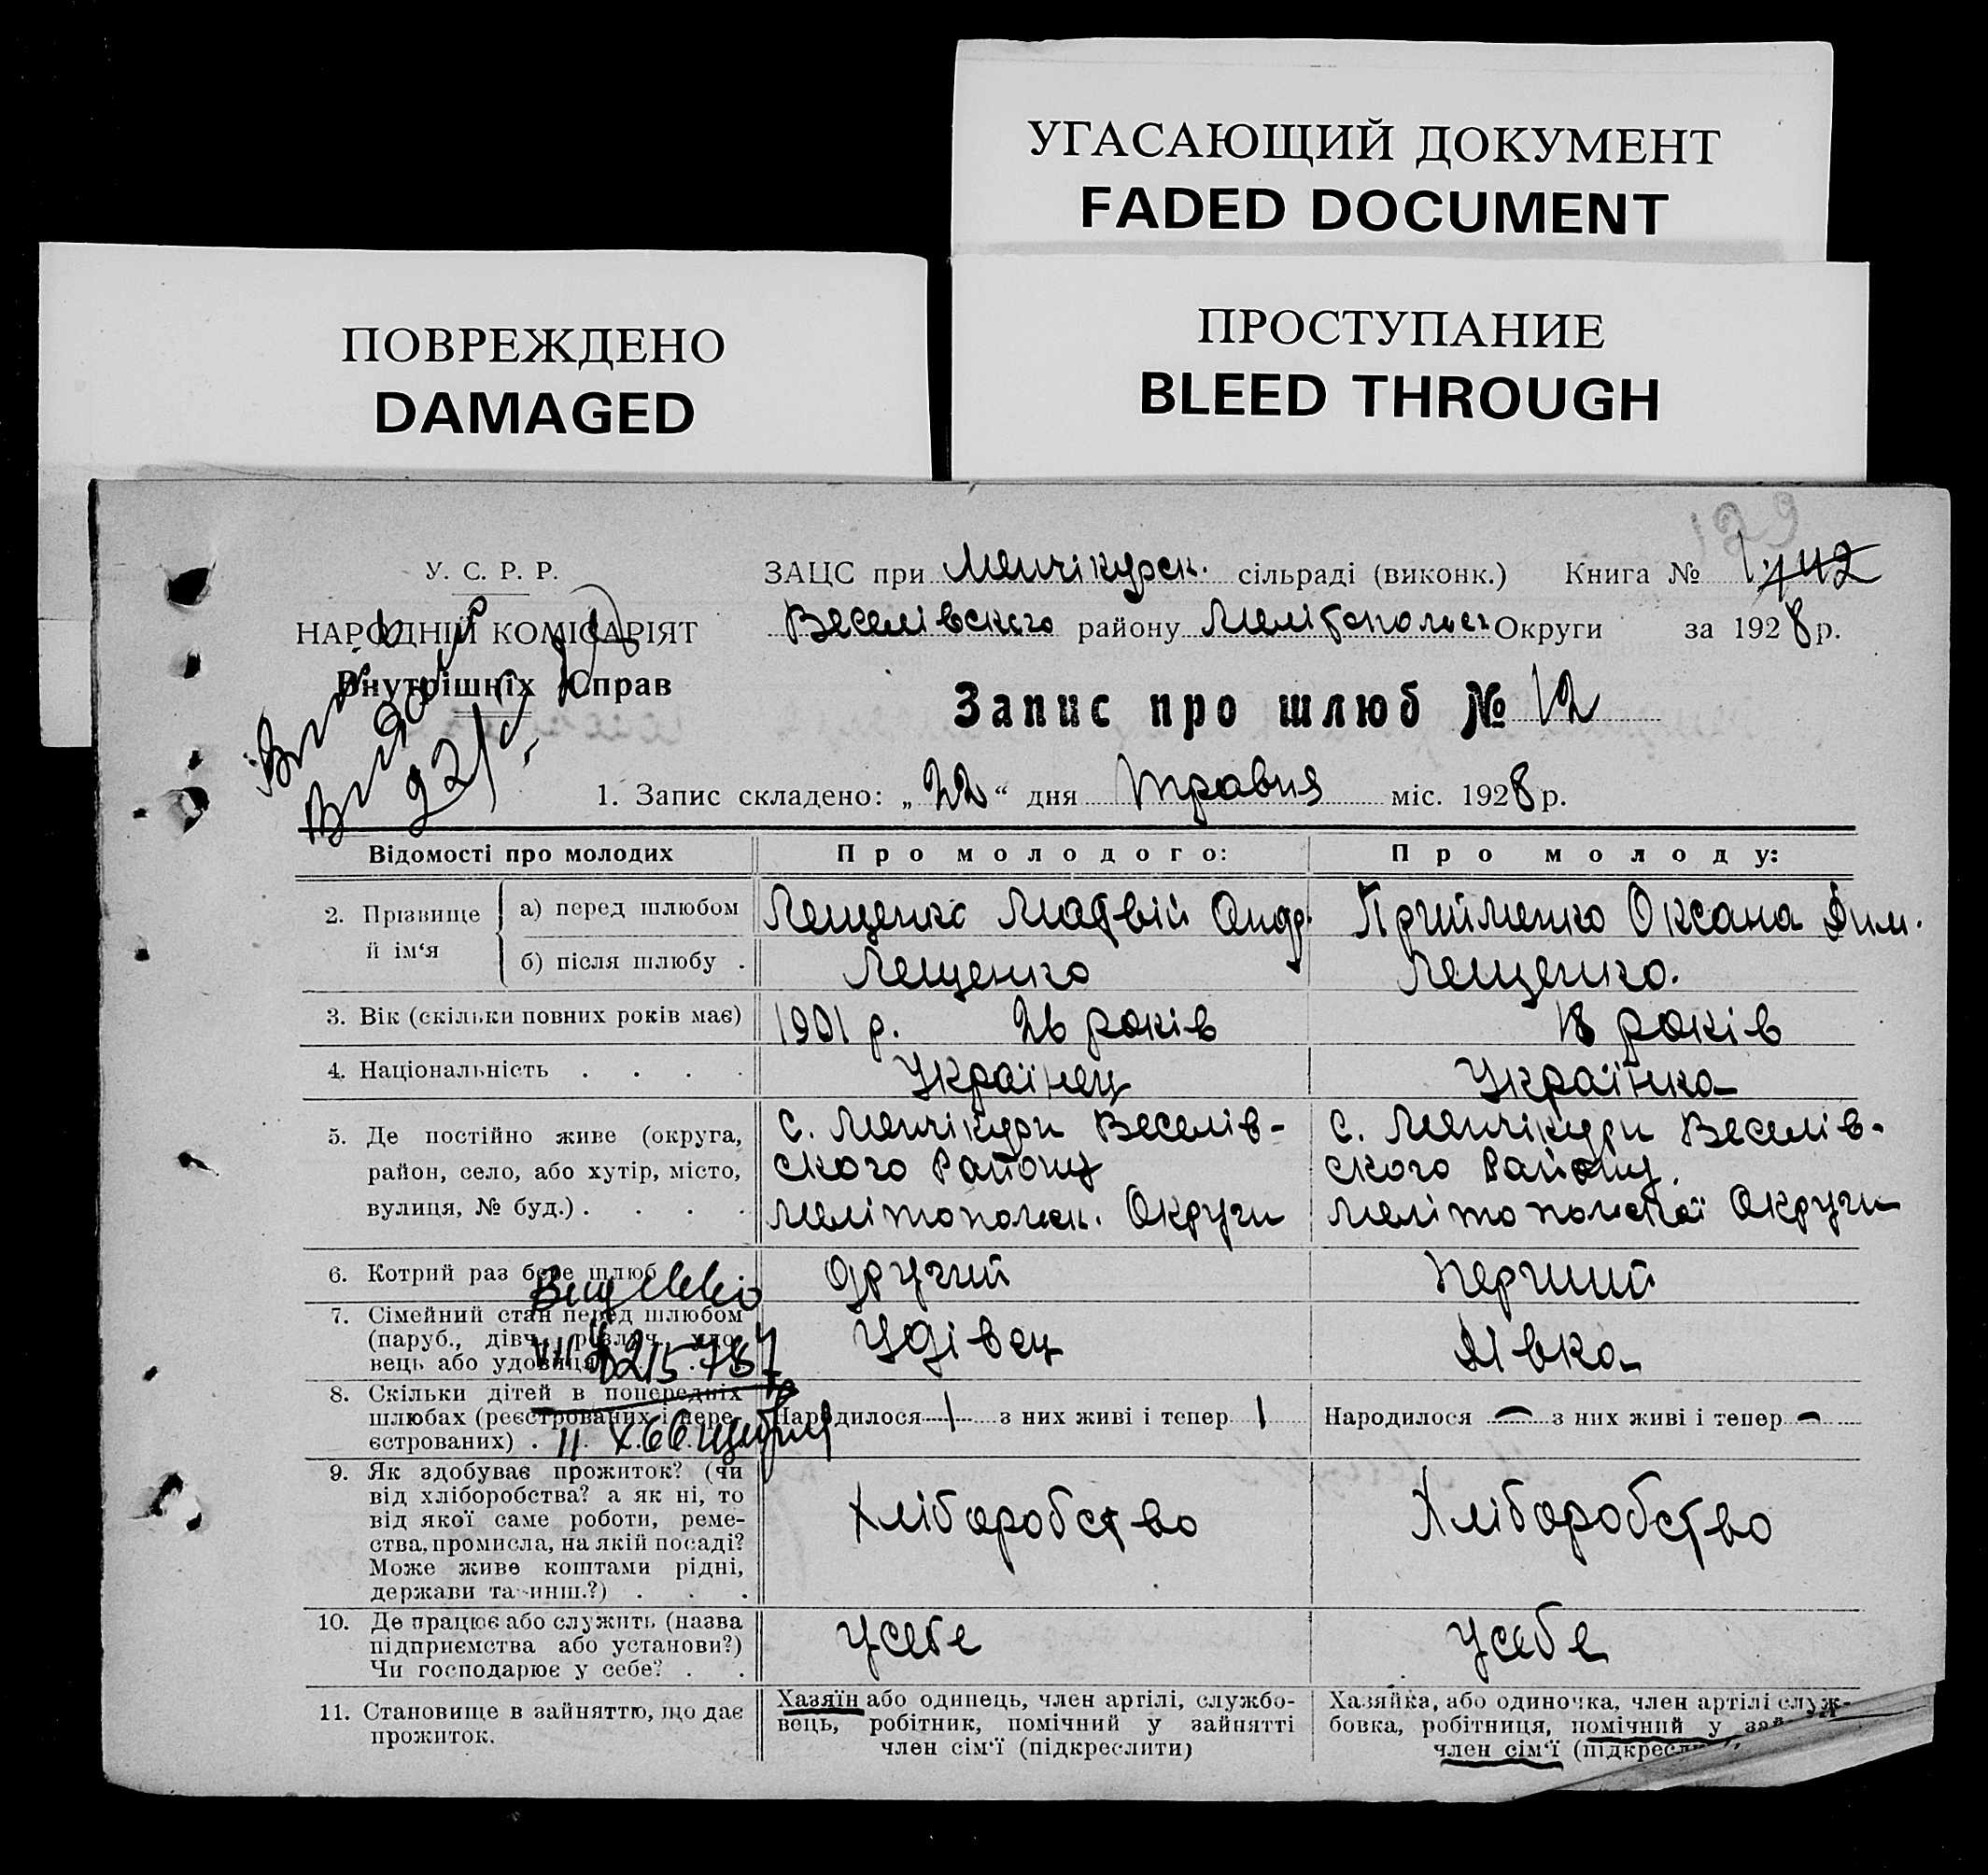 УГАСАЮЩИЙ ДОКУМЕНТ
FADED DOCUMENT
ПОВРЕЖДЕНО
DAMAGED
ПРОСТУПАНИЕ
BLEED THROUGH
У. С. Р. Р.
НАРОДНІЙ КОМІСАРІЯТ
Внутрішніх Справ
ЗАЦС при Менчікурск. сільраді (виконк.) Книга № 1
Веселівского району Мелітопольск Округи за 1928 р.
Запис про шлюб № 12
1. Запис складено: „22“ дня травня міс. 1928 р.
Відомості про молодих
Про молодого:
Про молоду:
2. Прізвище й ім‘я
а) перед шлюбом
Лещенко Матвій Андр.
Прийменко Оксана Дим.
б) після шлюбу .
Лещенко
Лещенко.
3. Вік (скільки повних років має)
1901 р. 26 років
18 років
4. Національність . . . .
Українец
Українка
5. Де постійно живе (округа,
район, село, або хутір, місто,
вулиця, № буд.) . . . .
с. Менчікури Веселів-
ского Району
Мелітопольск. Округи
с. Менчікури Веселів-
ского Району,
Мелітопольскої Округи
6. Котрий раз бере шлюб
другий
перший
7. Сімейний стан перед шлюбом
(паруб., дівч., розлуч., удо-
вець або удовиця)
Удівец
Дівка
8. Скільки дітей в попередніх
шлюбах (реєстрованих і нере-
єстрованих) .
Народилося 1 з них живі і тепер 1
Народилося — з них живі і тепер —
9. Як здобуває прожиток? (чи
від хліборобства? а як ні, то
від якої саме роботи, реме-
ства, промисла, на якій посаді?
Може живе коштами рідні,
держави та инш.?) . . .
Хліборобство
Хліборобство
10. Де працює або служить (назва
підприємства або установи?)
Чи господарює у себе? . .
усебе
усебе
11. Становище в зайняттю, що дає
прожиток.
Хазяїн або одинець, член артілі, службо-
вець, робітник, помічний у зайнятті
член сім‘ї (підкреслити)
Хазяйка, або одиночка, член артілі служ-
бовка, робітниця, помічний у
член сім‘ї